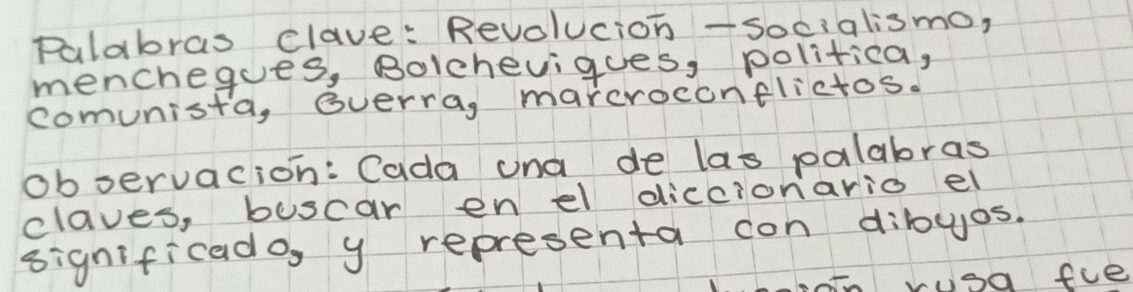 Palabras clave: Revolución - Socialismo,
mencheques, Bolcheviques, política,
comunista, Guerra, marcroconflictos.
Observación: Cada una de las palabras
claves, buscar en el diccionario el
significado, y representa con dibujos.
rusa fue